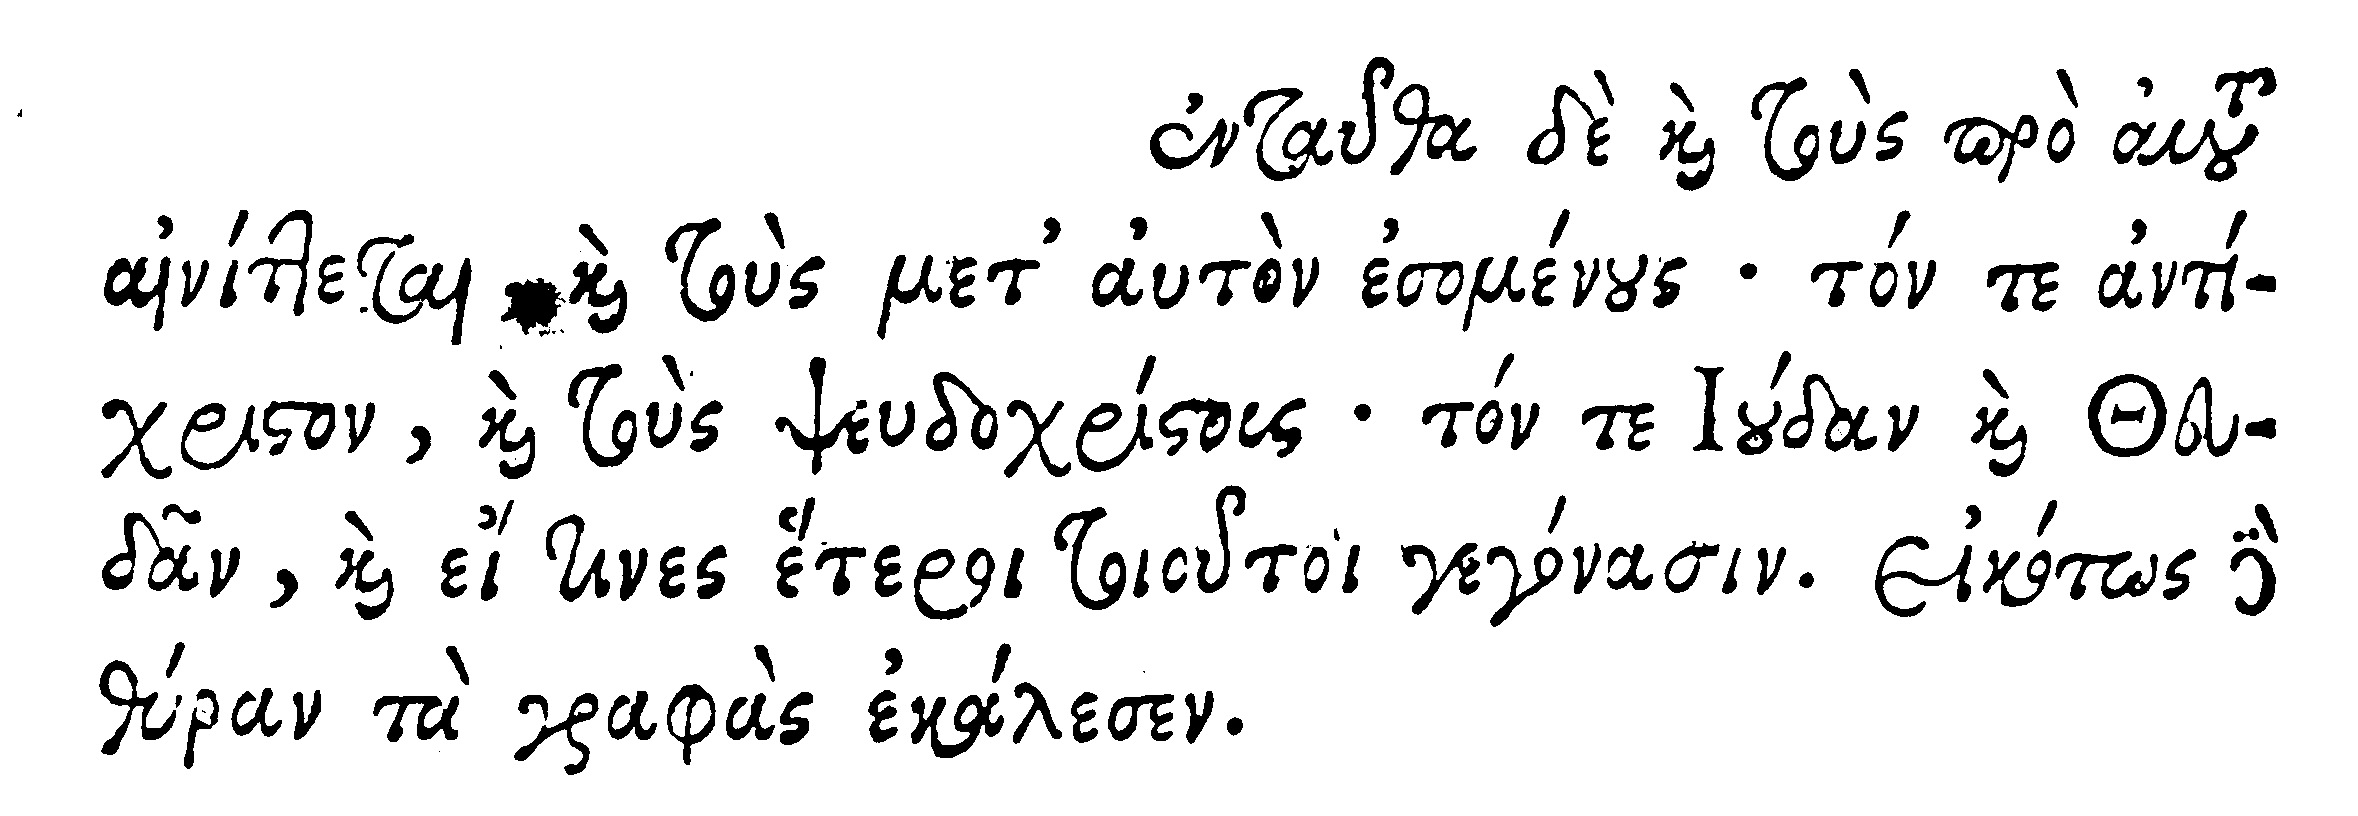 ἐνταῦθα δὲ καὶ τοὺς πρὸ αὐτοῦ
αἰνίττεται καὶ τοὺς μετ' αὐτὸν ἐσομένους · τόν τε ἀντί-
χριστον, καὶ τοὺς ψευδοχρίστους · τόν τε Ιούδαν καὶ Θευ-
δᾶν, καὶ εἴ τινες ἕτεροι τοιοῦτοι γεγόνασιν. Εἰκότως δὲ
θύραν τὰ γραφὰς ἐκάλεσεν.